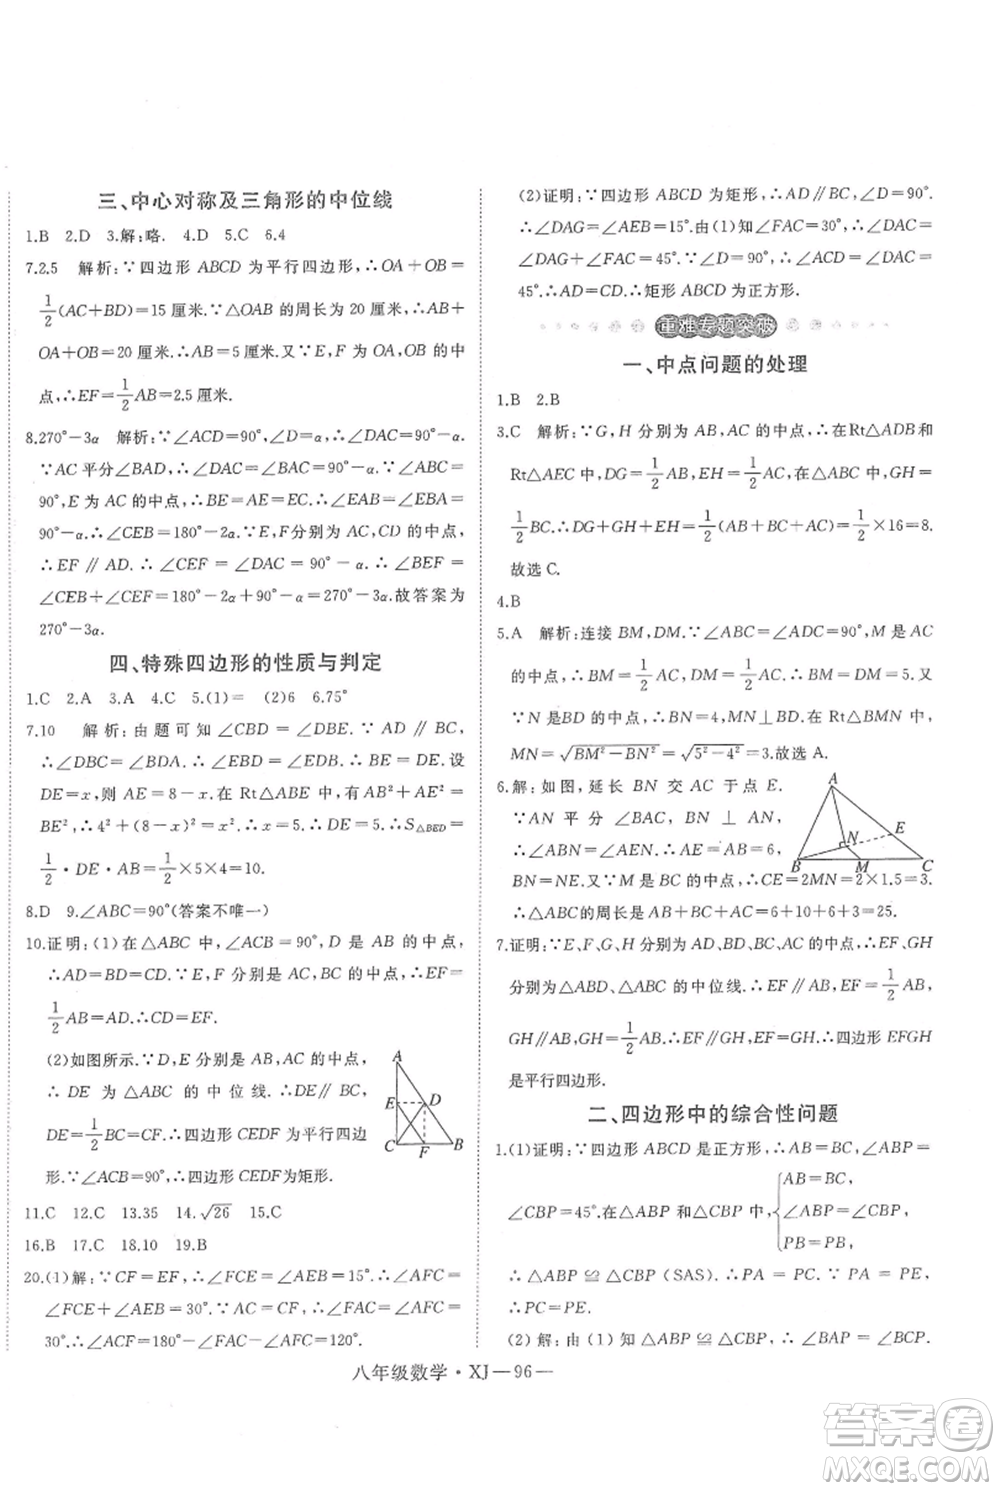 三、中心对称及三角形的中位线
1.B 2.D 3.解:略. 4.D 5.C 6.4
7.2.5 解析:∵四边形ABCD为平行四边形,∴OA+OB=
1/2(AC+BD)=15厘米.∵△OAB的周长为20厘米,∴
OA+OB+AB=20厘米.∴AB=5厘米.又∵E,F是OA,OB的中
点,∴EF=1/2AB=2.5厘米.
8.270°-3α 解析:∵∠ACD=90°,∠D=α,∴∠DAC=90°-α.
∵AC平分∠BAD,∴∠DAC=∠BAC=90°-α.∵∠ABC=
90°,E为AC的中点,∴BE=AE=EC.∴∠EAB=∠EBA=
90°-α.∴∠CEB=180°-2α.∵E,F分别为AC,CD的中点,
∴EF∥AD.∴∠CEF=∠DAC=90°-α.∴∠BEF=
∠CEB+∠CEF=180°-2α+90°-α=270°-3α.故答案为
270°-3α.
四、特殊四边形的性质与判定
1.C 2.A 3.A 4.C 5.(1)= (2)6 6.75°
7.10 解析:由题可知∠CBD=∠EBD.∵AD∥BC,
∴∠DBC=∠BDE.∴∠EBD=∠BDE.∴BE=DE.设
DE=x,则AE=8-x.在Rt△ABE中,有AB²+AE²=
BE²,∴4²+(8-x)²=x².∴x=5.∴DE=5.∴S△BED=
1/2·DE·AB=1/2×5×4=10.
8.D 9.∠ABC=90°(答案不唯一)
10.证明:(1)在△ABC中,∠ACB=90°,D是AB的中点,
∴AD=BD=CD.∵E,F分别是AC,BC的中点,∴EF=
1/2AB=AD.∴CD=EF.
(2)如图所示.∵D,E分别是AB,AC的中点,
∴DE为△ABC的中位线.∴DE∥BC,
DE=1/2BC=CF.∴四边形CEDF为平行四边
形.∵∠ACB=90°,∴四边形CEDF为矩形.
A
E
D
C
F
B
11.C 12.C 13.35 14.√26 15.C
16.B 17.C 18.10 19.B
20.(1)解:∵CF=EF,∴∠FCE=∠AEB=15°.∴∠AFC=
∠FCE+∠AEB=30°.∵AC=CF,∴∠FAC=∠AFC=
30°.∴∠ACF=180°-∠FAC-∠AFC=120°.
(2)证明:∵四边形ABCD为矩形,∴AD∥BC,∠D=90°.
∴∠DAG=∠AEB=15°.由(1)知∠FAC=30°,∴∠DAC=
∠DAG+∠FAC=45°.∵∠D=90°,∴∠DAC=∠DCA=
45°.∴DA=DC.∴矩形ABCD为正方形.
重难专题突破
一、中点问题的处理
1.B 2.B
3.C 解析:∵G,H分别为AB,AC的中点,∴在Rt△ADB和
Rt△AEC中,DG=1/2AB,EH=1/2AC.在△ABC中,GH=
1/2BC.∴DG+GH+EH=1/2(AB+AC+BC)=1/2×16=8.
故选C.
4.B
5.A 解析:连接BM,DM.∵∠ABC=∠ADC=90°,M是AC
的中点,∴BM=1/2AC,DM=1/2AC.∴BM=DM=5.又
∵N是BD的中点,∴BN=4,MN⊥BD.在Rt△BMN中,
MN=√(BM²-BN²)=√(5²-4²)=3.故选A.
6.解:如图,延长BN交AC于点E.
∵AN平分∠BAC,BN⊥AN,
∴∠ABN=∠AEN.∴AE=AB=6,
BN=NE.又∵M是△ABC的边
BC的中点,∴CE=2MN=2×1.5=3.
∴△ABC的周长为AB+BC+AC=6+10+6+3=25.
A
N
E
B
M
C
7.证明:∵E、F、G、H分别为AD、BD、BC、AC的中点,∴EF,GH
分别为△ABD、△ABC的中位线.∴EF∥AB,EF=1/2AB,
GH∥AB,GH=1/2AB.∴EF∥GH,EF=GH.∴四边形EFGH
是平行四边形.
二、四边形中的综合性问题
1.(1)证明:∵四边形ABCD是正方形,∴AB=BC,∠ABP=
∠CBP=45°.在△ABP和△CBP中,{AB=BC,
∠ABP=∠CBP,
PB=PB,
∴△ABP≌△CBP(SAS).∴PA=PC.∵PA=PE,
∴PC=PE.
(2)解:由(1)知△ABP≌△CBP,∴∠BAP=∠BCP.
八年级数学·XJ—96—
答案卷
MXQE.COM